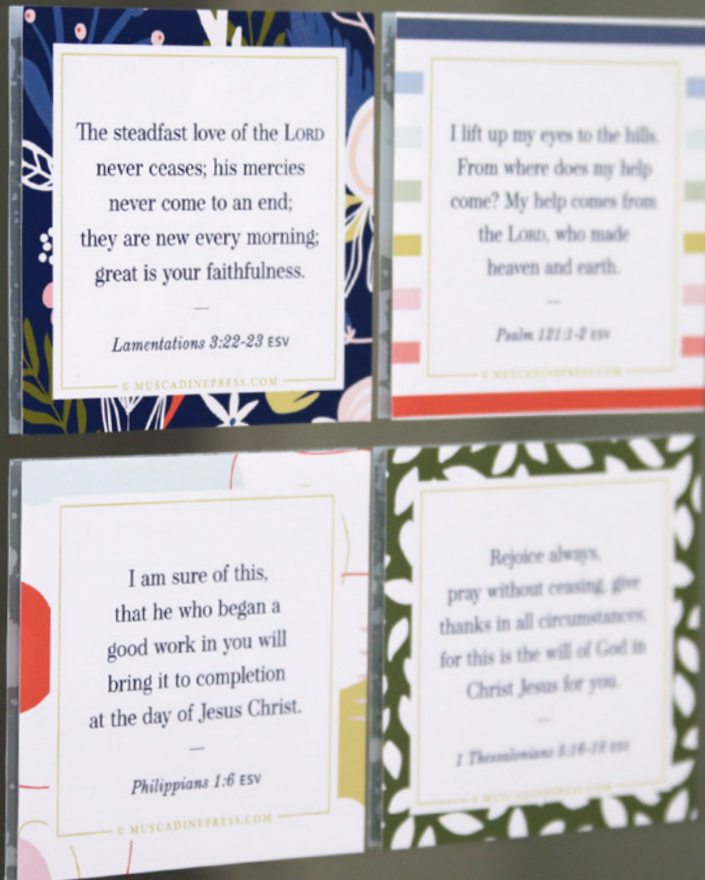 The steadfast love of the LORD
never ceases; his mercies
never come to an end;
they are new every morning;
great is your faithfulness.
—
Lamentations 3:22-23 ESV
© MUSCADINEPRESS.COM
I lift up my eyes to the hills.
From where does my help
come? My help comes from
the LORD, who made
heaven and earth.
—
Psalm 121:1-2 ESV
© MUSCADINEPRESS.COM
I am sure of this,
that he who began a
good work in you will
bring it to completion
at the day of Jesus Christ.
—
Philippians 1:6 ESV
© MUSCADINEPRESS.COM
Rejoice always,
pray without ceasing, give
thanks in all circumstances;
for this is the will of God in
Christ Jesus for you.
—
1 Thessalonians 5:16-18 ESV
© MUSCADINEPRESS.COM